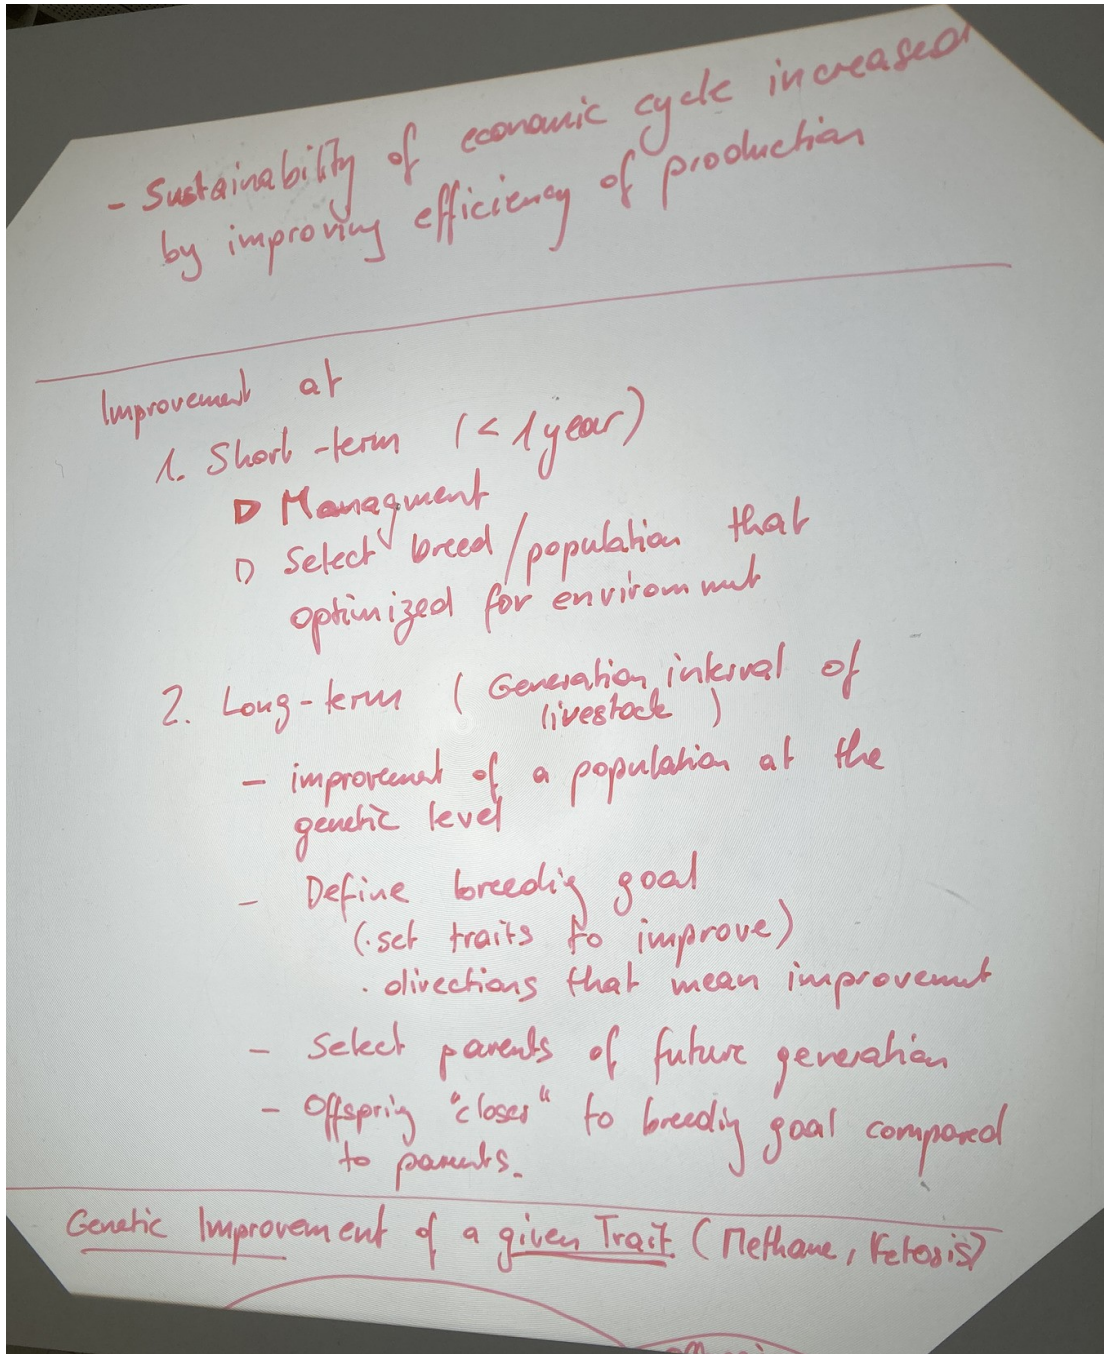 - Sustainability of economic cycle increased
by improving efficiency of production
Improvement at
1. Short-term (< 1 year)
Managment
Select breed/population that
optimized for environmnt
2. Long-term (Generation interval of
livestock)
- improvement of a population at the
genetic level
- Define breedig goal
(· set traits to improve)
· directions that mean improvement
- Select parents of future generation
- Offspring "closer" to breedig goal compared
to parents.
Genetic Improvement of a given Trait (Methane, Ketosis)